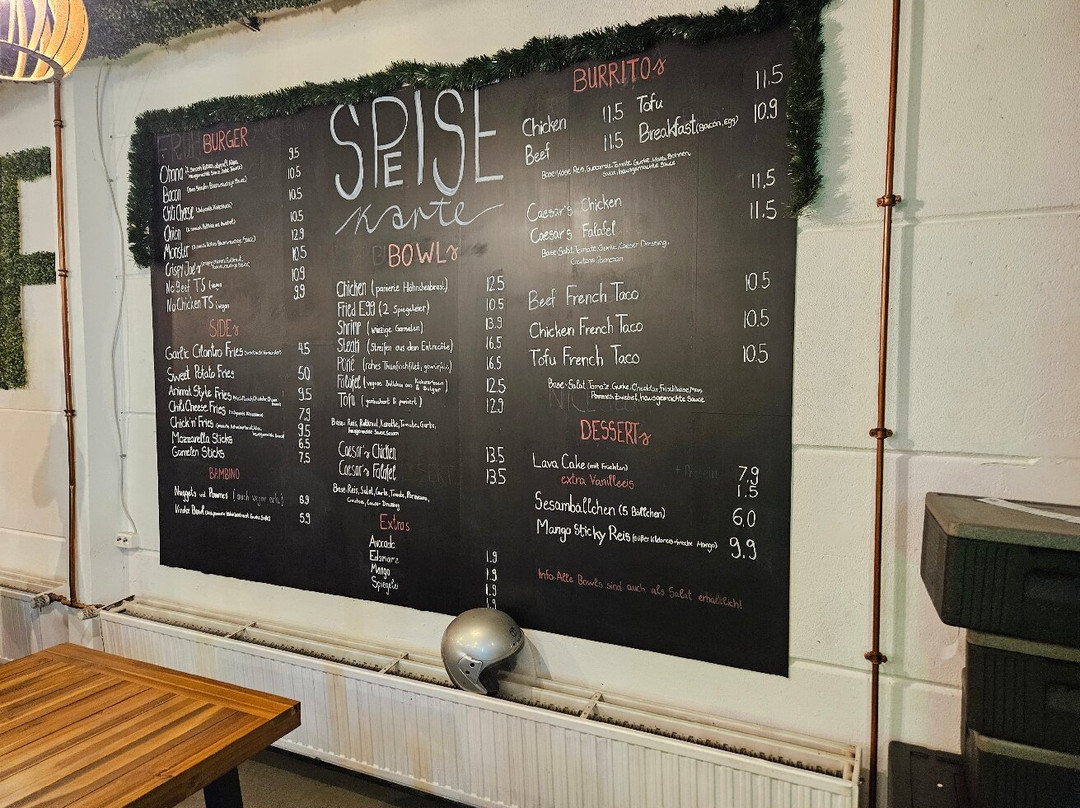 SPEISE
Karte
BURGER
Ohana 9.5
Bacon 10.5
Chili Cheese 10.5
Onion 10.5
Monster 12.9
Crispy Joe's 10.5
No Beef T.S (vegan 10.9
No Chicken T.S (vegan 9.9
SIDEs
Garlic Cilantro Fries 4.5
Sweet Potato Fries 5.0
Animal Style Fries 9.5
Chili Cheese Fries 7.9
Chick'n Fries 9.5
Mozzarella Sticks 6.5
Garnelen Sticks 7.5
BAMBINO
Nuggets und Pommes (auch vegan erh.) 8.9
Kinder Bowl 5.9
BOWLs
Chicken (panierte Hähnchenbrust) 12.5
Fried Egg (2 Spiegeleier) 10.5
Shrimp (würzige Garnelen) 13.9
Steak (Streifen aus dem Entrecôte) 16.5
Poké (rohes Thunfischfilet, gewürfelt) 16.5
Falafel (vegane Bällchen aus Kichererbsen & Bulgur) 12.5
Tofu (gewürzt & paniert) 12.9
Base: Reis, Rotkohl, Karotte, Tomate, Gurke,
hausgemachte Sauce, Sesam
Caesar's Chicken 13.5
Caesar's Falafel 13.5
Base: Reis, Salat, Gurke, Tomate, Parmesan,
Croutons, Caesar Dressing
Extras
Avocado 1.9
Edamame 1.9
Mango 1.9
Spiegelei 1.9
BURRITOs
Chicken 11.5 Tofu 11.5
Beef 11.5 Breakfast (Bacon, Egg) 10.9
Base: Käse, Reis, Guacamole, Tomate, Gurke, Mais, Bohnen,
Sauce, hausgemachte Sauce
Caesar's Chicken 11.5
Caesar's Falafel 11.5
Base: Salat, Tomate, Gurke, Caesar Dressing,
Croutons, Parmesan
Beef French Taco 10.5
Chicken French Taco 10.5
Tofu French Taco 10.5
Base: Salat, Tomate, Gurke, Cheddar, Frischkäse, Mais
Pommes, Zwiebel, hausgemachte Sauce
DESSERTs
Lava Cake (mit Früchten) 7.9
extra Vanilleeis 1.5
Sesambällchen (5 Bällchen) 6.0
Mango Sticky Reis (süßer Klebereis-frische Mango) 9.9
Info: Alle Bowls sind auch als Salat erhältlich!